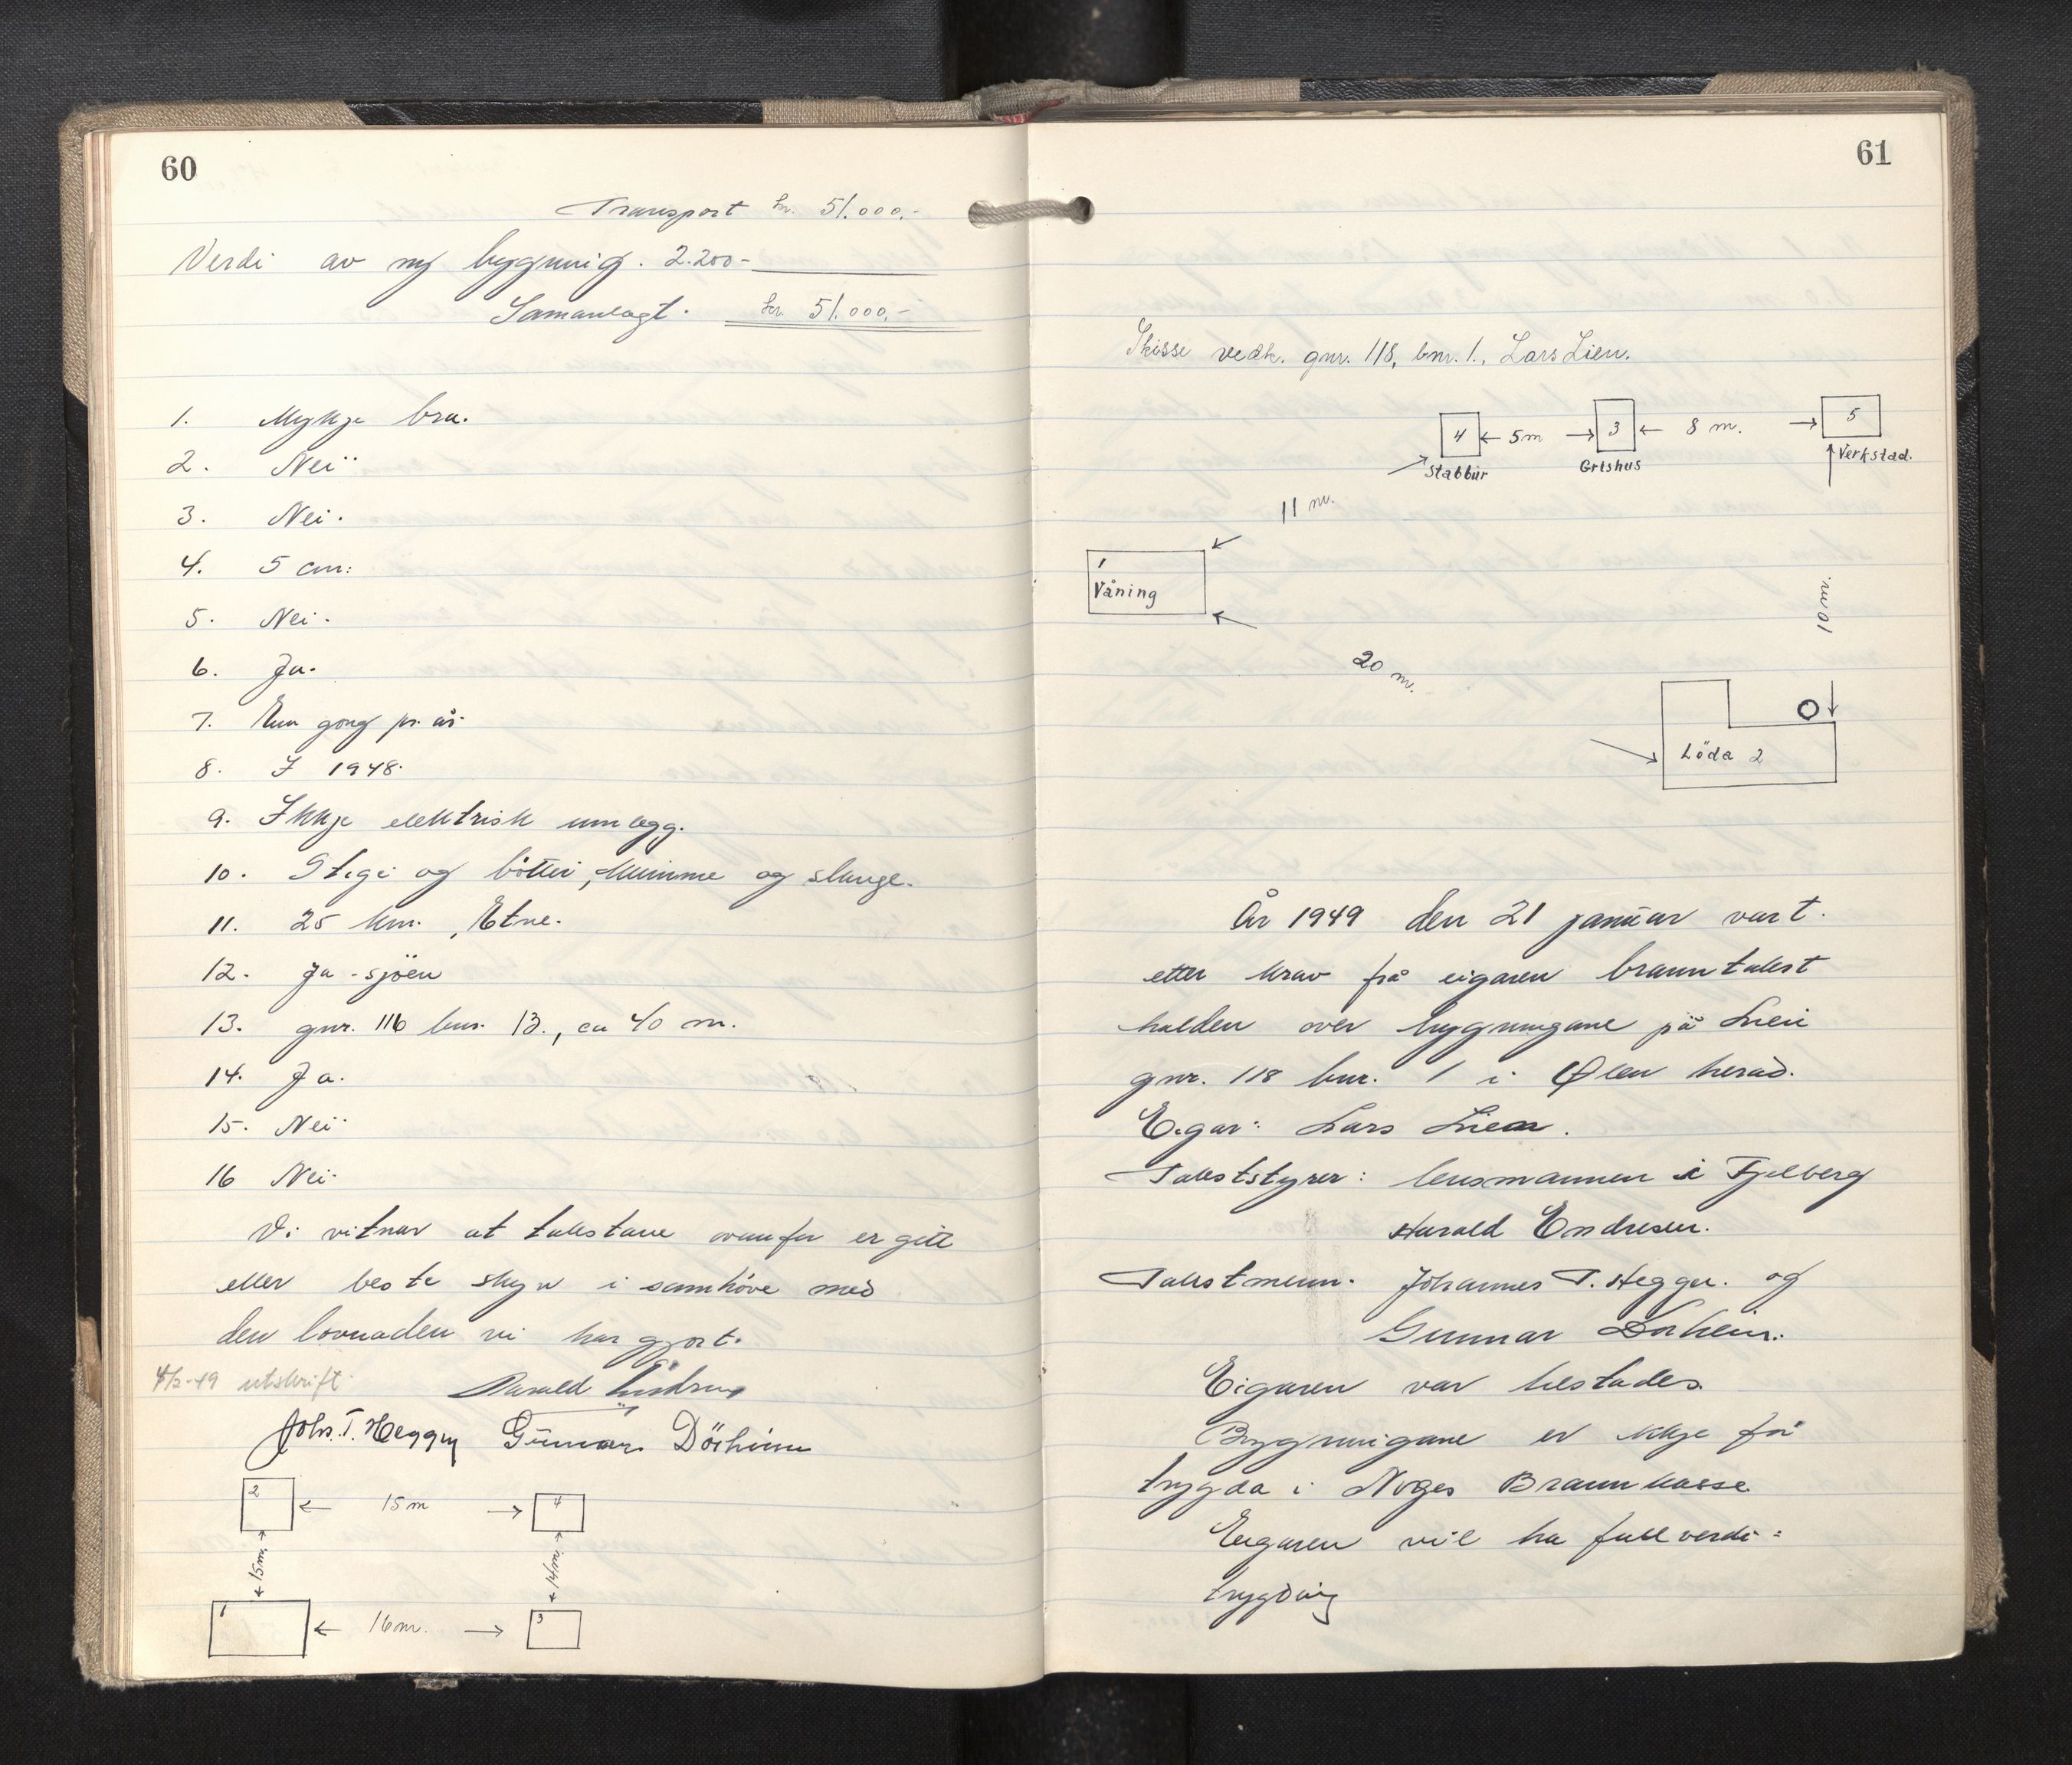 60
Transport kr. 51.000,-
Verdi av ny bygning. 2.200-
Samanlagt. kr. 51.000,-
1. Mykje bra.
2. Nei
3. Nei.
4. 5 cm:
5. Nei.
6. Ja.
7. Ein gong pr. år.
8. I 1948.
9. Ikkje elektrisk innlegg.
10. Stige og bøtter, kumme og slange.
11. 25 km., Etne.
12. Ja - sjöen
13. gnr. 116 bnr. 13., ca 40 m.
14. Ja.
15. Nei.
16 Nei.
Vi vitnar at takstane ovanfor er gitt
etter beste skyn i samhöve med
den lovnaden vi har gjort.
4/2-49 utskrift.
Harald Endresen
Johs. T. Heggen Gunnar Dörheim
2 ← 15 m → 4
15 m. 14 m.
1 ← 16 m. → 3
61
Skisse vedk. gnr. 118, bnr. 1., Lars Lien.
4 ← 5 m → 3 ← 8 m. → 5
Stabbur Grishus Verkstad.
11 m.
1
Våning
10 m.
20 m.
Löda 2
År 1949 den 21 januar vart
etter krav frå eigaren branntakst
halden over bygningane på Lien
gnr. 118 bnr. 1 i Ølen herad.
Eigar: Lars Lien.
Takststyrer: lensmannen i Fjelberg
Harald Endresen.
Takstmenn. Johannes T. Heggen. og
Gunnar Dörheim.
Eigaren var tilstades.
Bygningane er ikkje før
trygda i Noges Brannkasse
Eigaren vil ha full verdi=
trygding